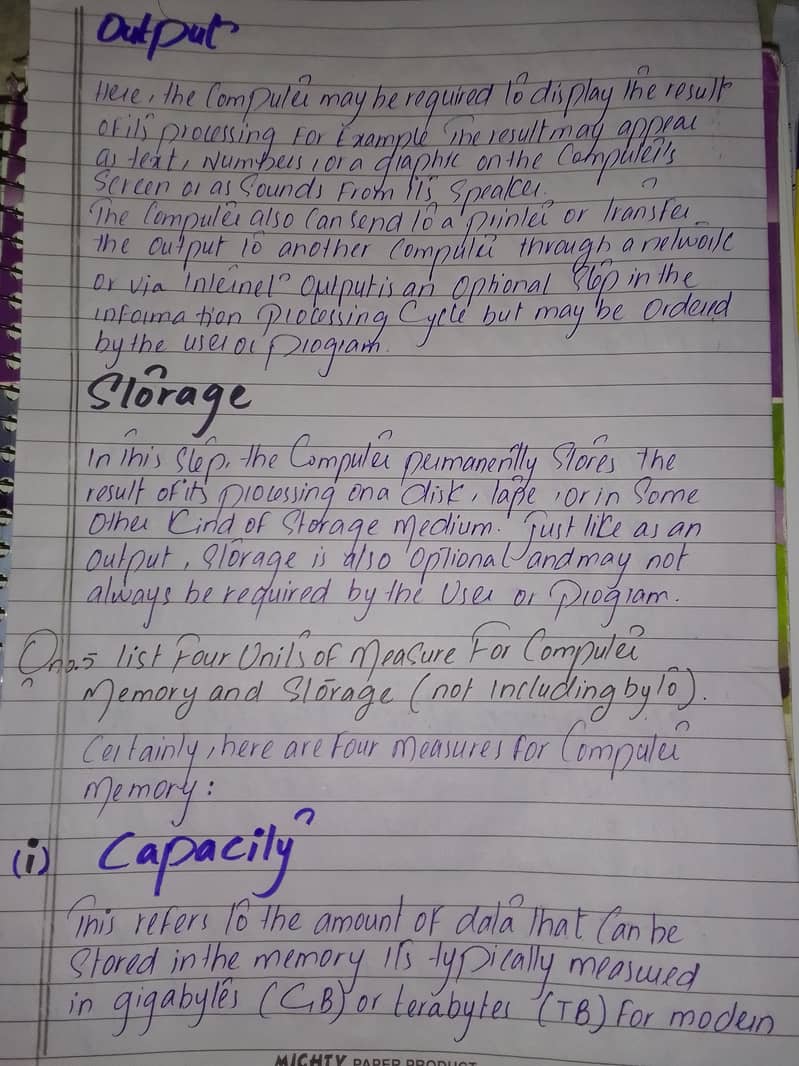 Output
Here, the Computer may be required to display the result
of its processing For Example The result may appear
as text, Numbers, or a graphic on the Computer's
Screen or as Sounds From its Speaker.
The Computer also Can send to a printer or transfer
the output to another Computer through a network
or via Internet Output is an Optional Step in the
information Processing Cycle but may be Ordered
by the user or program.
Storage
In this Step, the Computer permanently Stores the
result of its processing on a disk, tape, or in Some
Other Kind of Storage Medium. Just like as an
output, Storage is also Optional and may not
always be required by the User or program.
Qno.5 list Four Units of Measure For Computer
Memory and Storage (not Including byto).
Certainly, here are Four Measures for Computer
Memory:
(i) Capacity
This refers to the amount of data that Can be
Stored in the memory its typically measured
in gigabytes (GB) or terabytes (TB) For modern
MIGHTY PAPER PRODUCT